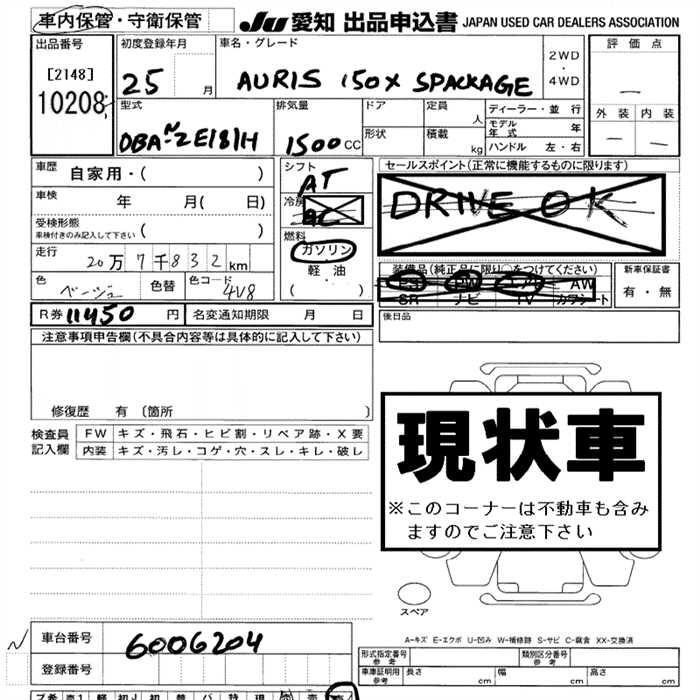 車内保管・守衛保管 JU 愛知 出品申込書 JAPAN USED CAR DEALERS ASSOCIATION
出品番号 初度登録年月 車名・グレード 評価点
[2148] 25 月 AURIS 150X SPACKAGE 2WD・4WD —
10208
型式 排気量 ドア 定員 人 ディーラー・並行 外装 内装
DBA-NZE181H 1500 CC 形状 積載 kg モデル年式 年 — —
ハンドル 左・右
車歴 自家用・( ) シフト AT セールスポイント(正常に機能するものに限ります)
車検 年 月( 日) 冷房 AC DRIVE OK
受検形態 ( )
車検付きのみ記入して下さい
燃料
走行 20万7千832km ガソリン
軽油
(・ )
装備品(純正品に限り○をつけてください) 新車保証書
色 ベージュ 色替 色コード 4V8 PS PW エアB AW 有・無
SR ナビ TV カワシート
R券 11450 円 名変通知期限 月 日 後日品
注意事項申告欄(不具合内容等は具体的に記入して下さい)
修復歴 有 〔箇所 〕
検査員記入欄 FW キズ・飛石・ヒビ割・リペア跡・X要
内装 キズ・汚レ・コゲ・穴・スレ・キレ・破レ
現状車
※このコーナーは不動車も含み
ますのでご注意下さい
スペア
A-キズ E-エクボ U-凹み W-補修跡 S-サビ C-腐食 XX-交換済
車台番号 6006204
登録番号
形式指定番号 参考 類別区分番号 参考
車庫証明用 参考 長さ cm 幅 cm 高さ cm